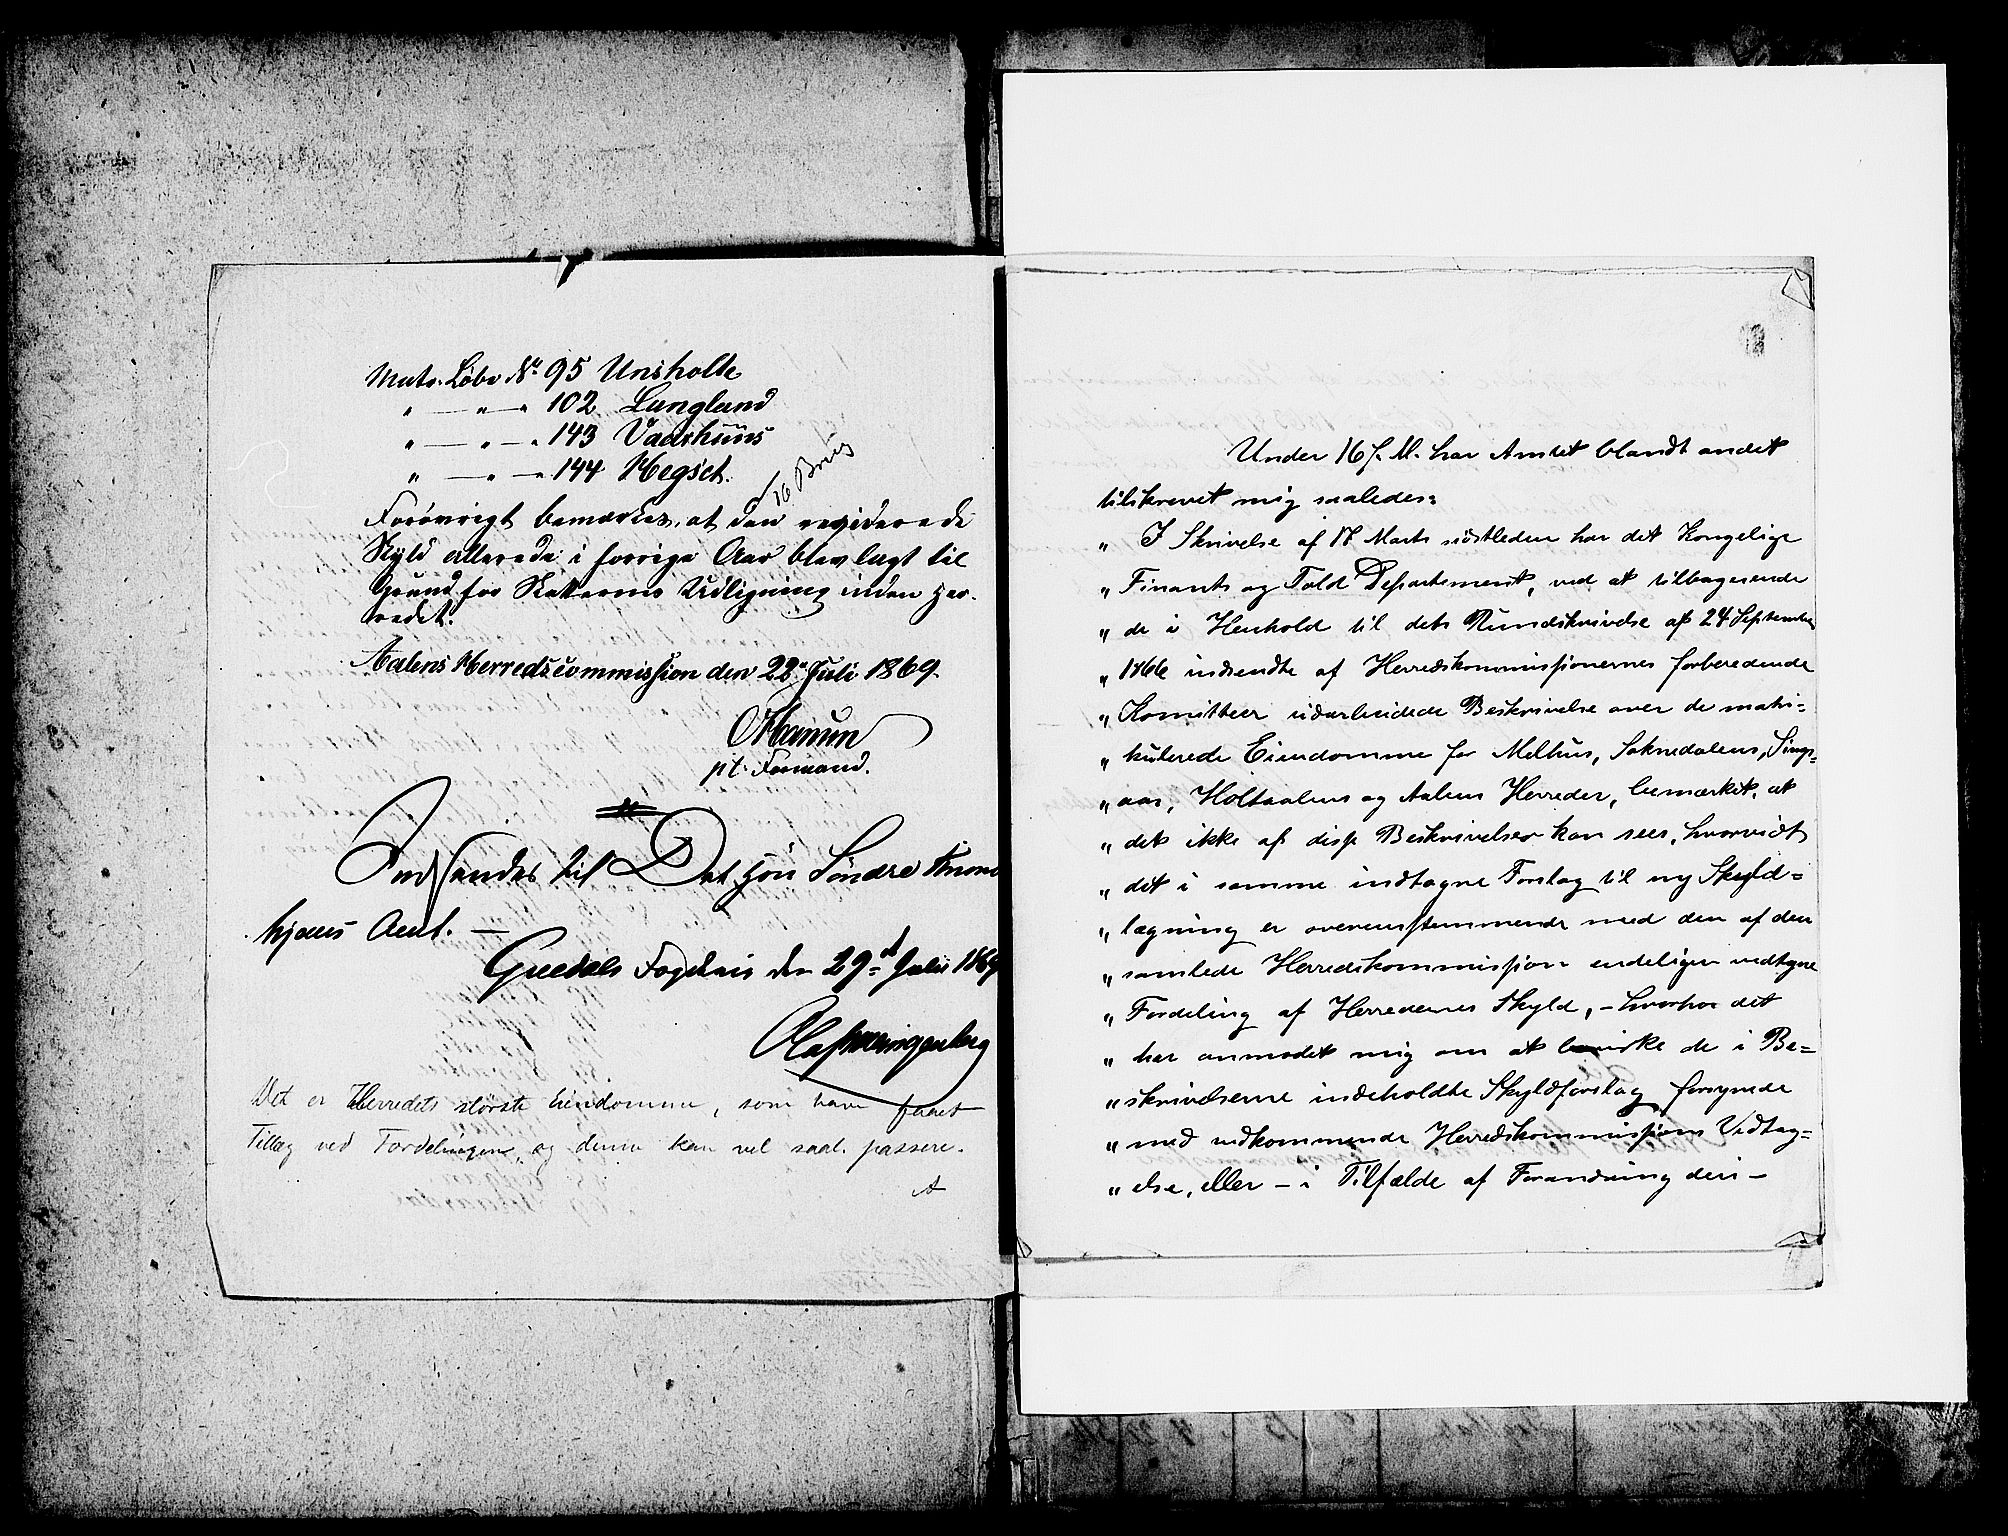 Matr. Løbe No 95 Unsholte
" — " — " 102 Langland
" — " — " 143 Vaarhuus
" — " — " 144 Hegset.
Forøvrigt bemærkes, at den reviderede
Skyld allerede i forrige Aar blev lagt til
Grund for Skatternes Udligning inden Her-
redet.
Aalens Herredscommission den 22de Juli 1869.
pt. Formand.
Indsendes til Det Høii Søndre Thrond
hjems Amt. —
Guldals Fogderie den 29de Julii 1869
Det er Herredets største Eiendomme, som have faaet
Tillæg ved Fordelingen, og denne kan vel saal. passere.
A
Under 16 f. M. har Amtet blandt andet
tilskrevet mig saaledes:
" I Skrivelse af 17 Marts sidstleden har det Kongelige
" Finants og Told Departement, ved at tilbagesende
" de i Henhold til dets Rundskrivelse af 24 September
" 1866 indsendte af Herredskommissionernes forberedende
" Komitteer udarbeidede Beskrivelse over de matri=
" kulerede Eiendomme for Melhus, Soknedalens, Sings=
" aas, Holtaalens og Aalens Herreder, bemærket, at
" det ikke af disse Beskrivelser kan sees, hvorvidt
" det i samme indtagne Forslag til ny Skyld=
" lægning er overensstemmende med den af den
" samlede Herredskommission endeligen vedtagne
" Fordeling af Herredernes Skyld, – hvorhos det
" har anmodet mig om at bevirke de i Be=
" skrivelserne indeholdte Skyldforslag forsynede
" med vedkommende Herredskommissions Vedtag=
" else, eller – i Tilfælde af Forandring deri –